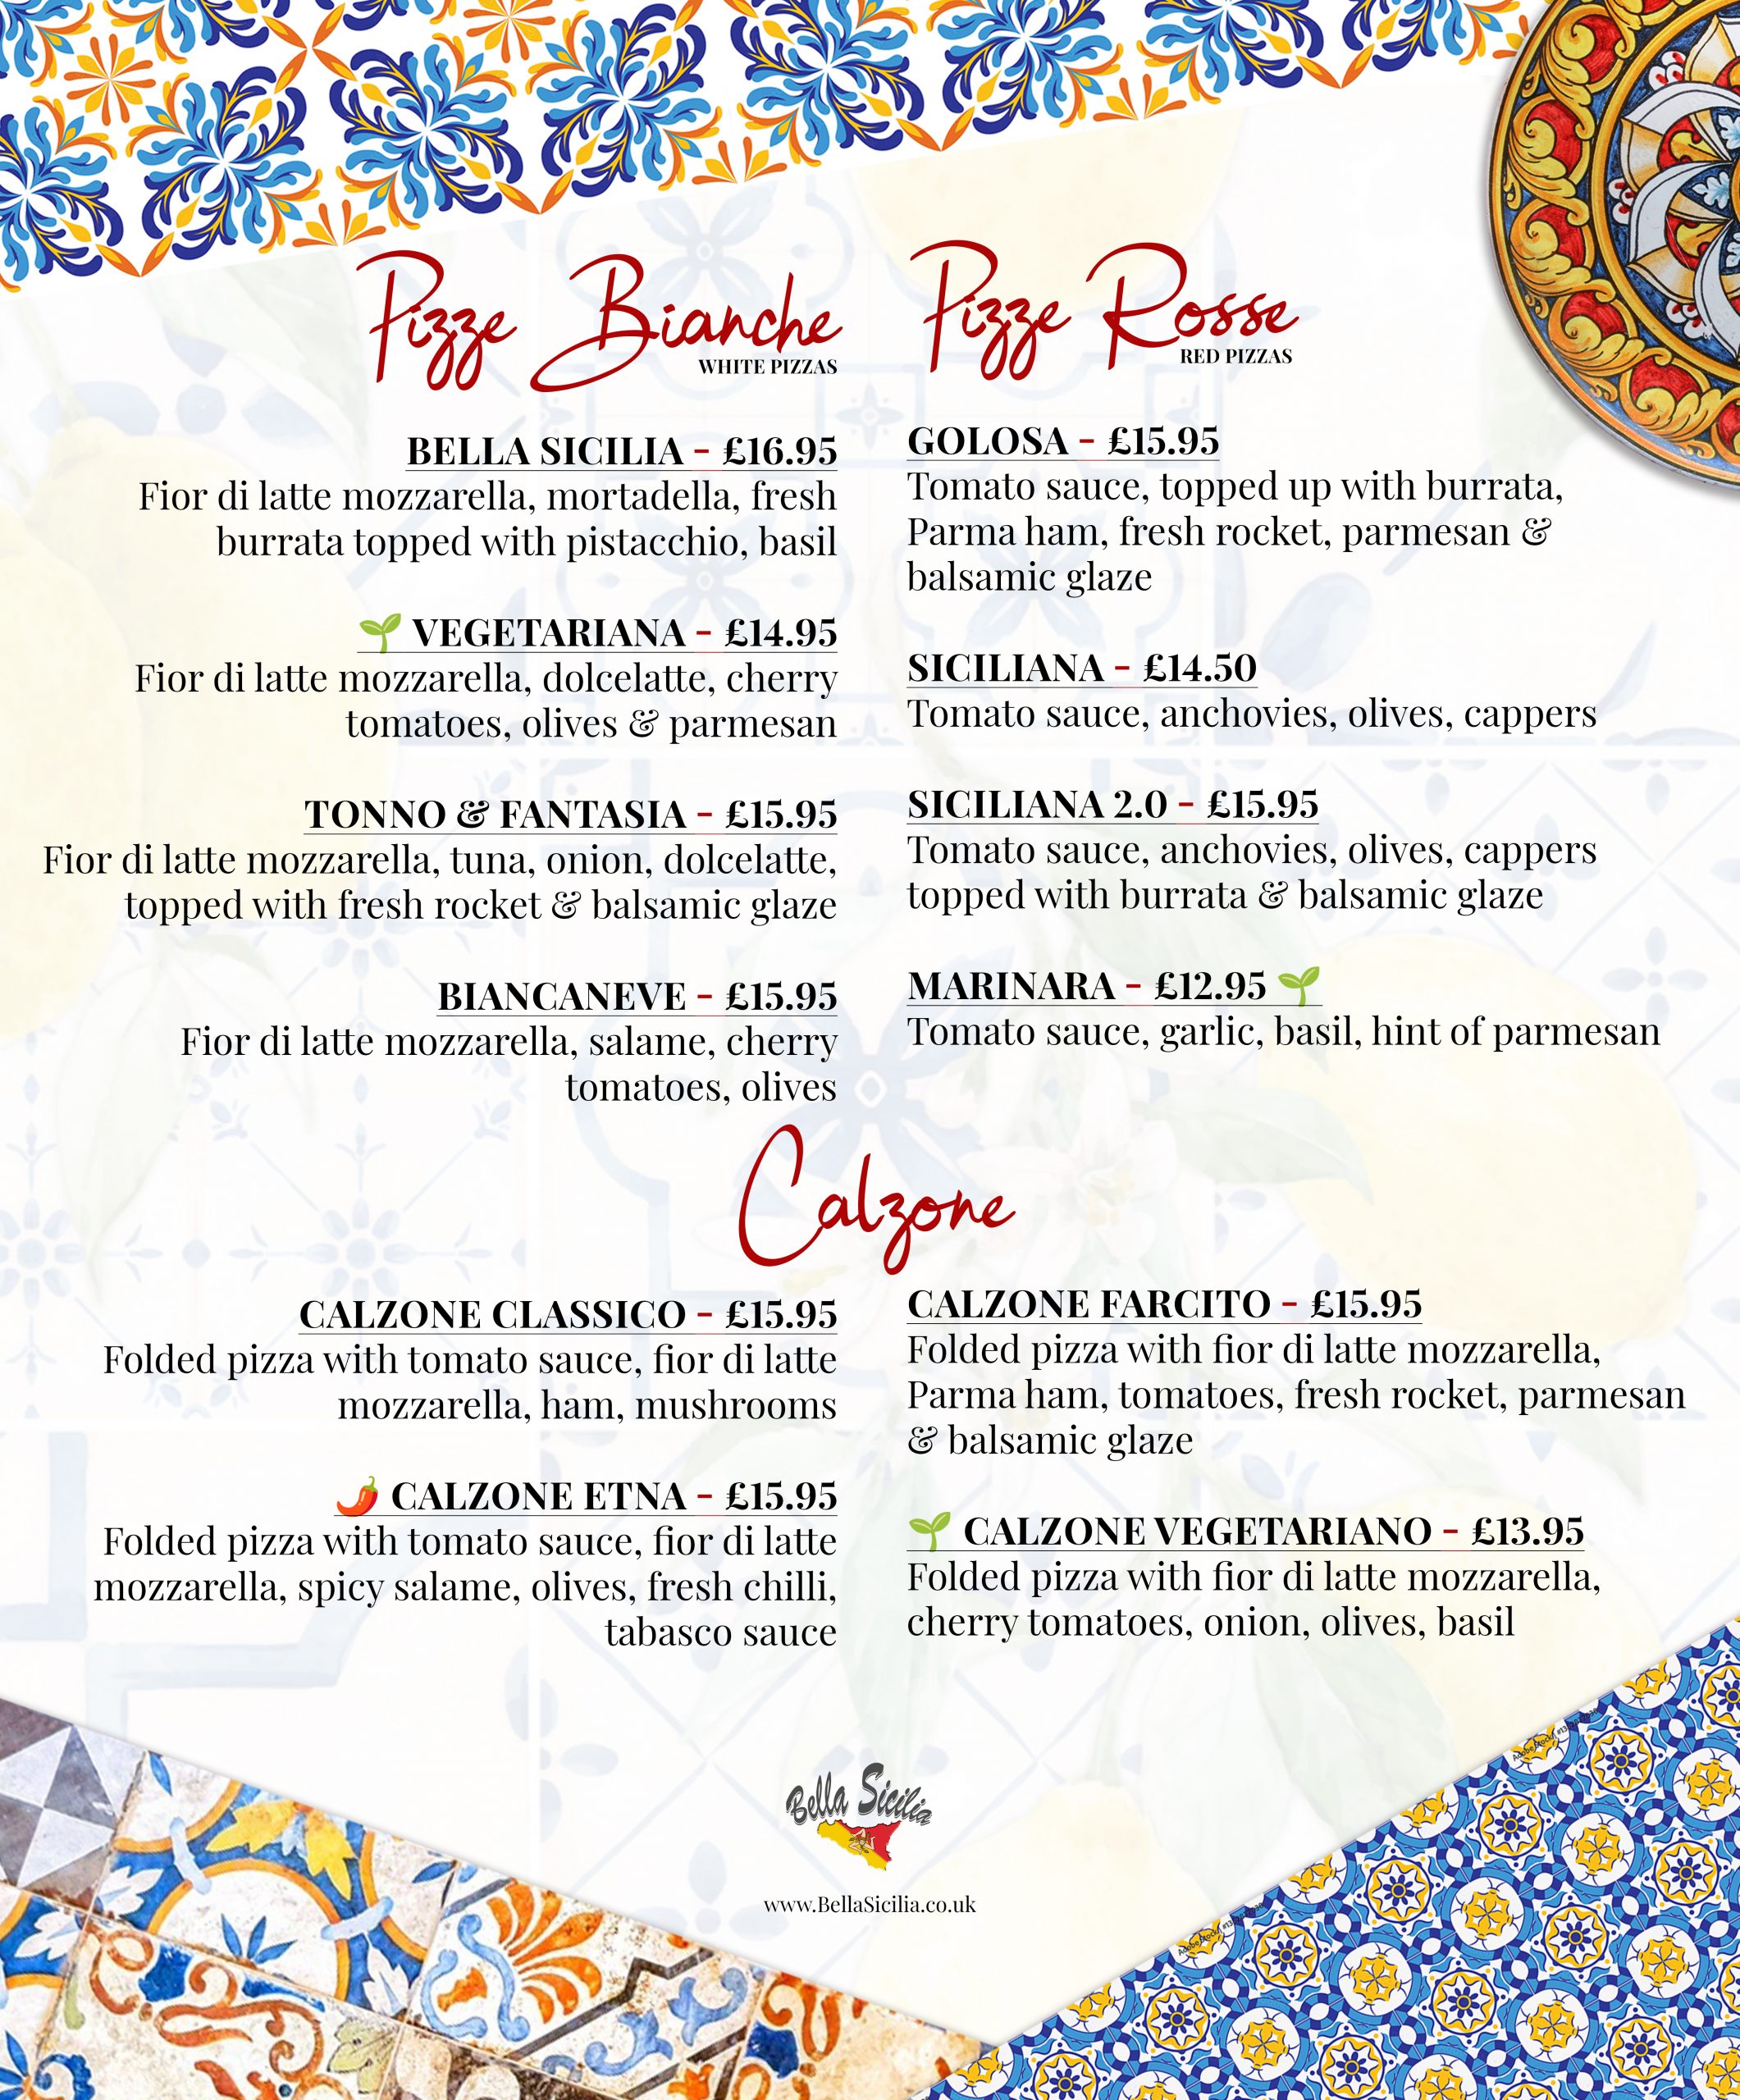 Pizze Bianche
WHITE PIZZAS
BELLA SICILIA - £16.95
Fior di latte mozzarella, mortadella, fresh
burrata topped with pistacchio, basil
🌱 VEGETARIANA - £14.95
Fior di latte mozzarella, dolcelatte, cherry
tomatoes, olives & parmesan
TONNO & FANTASIA - £15.95
Fior di latte mozzarella, tuna, onion, dolcelatte,
topped with fresh rocket & balsamic glaze
BIANCANEVE - £15.95
Fior di latte mozzarella, salame, cherry
tomatoes, olives
Pizze Rosse
RED PIZZAS
GOLOSA - £15.95
Tomato sauce, topped up with burrata,
Parma ham, fresh rocket, parmesan &
balsamic glaze
SICILIANA - £14.50
Tomato sauce, anchovies, olives, cappers
SICILIANA 2.0 - £15.95
Tomato sauce, anchovies, olives, cappers
topped with burrata & balsamic glaze
MARINARA - £12.95 🌱
Tomato sauce, garlic, basil, hint of parmesan
Calzone
CALZONE CLASSICO - £15.95
Folded pizza with tomato sauce, fior di latte
mozzarella, ham, mushrooms
🌶️ CALZONE ETNA - £15.95
Folded pizza with tomato sauce, fior di latte
mozzarella, spicy salame, olives, fresh chilli,
tabasco sauce
CALZONE FARCITO - £15.95
Folded pizza with fior di latte mozzarella,
Parma ham, tomatoes, fresh rocket, parmesan
& balsamic glaze
🌱 CALZONE VEGETARIANO - £13.95
Folded pizza with fior di latte mozzarella,
cherry tomatoes, onion, olives, basil
Bella Sicilia
www.BellaSicilia.co.uk
Adobe Stock
Adobe Stock